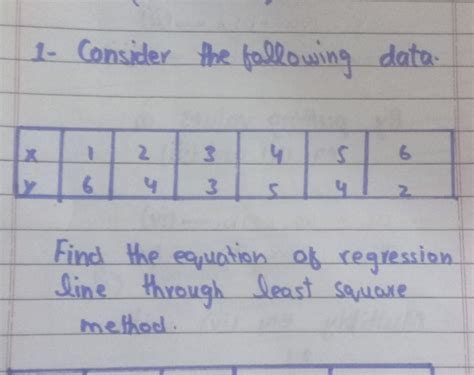 1- Consider the following data.
x 1 2 3 4 5 6
y 6 4 3 5 4 2
Find the equation of regression
line through least square
method.